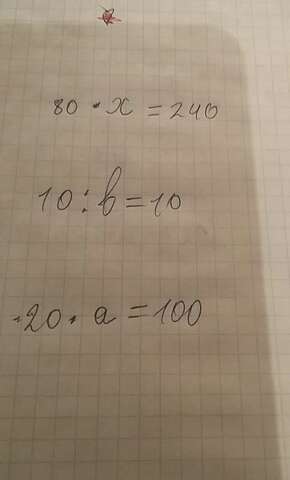 80 · x = 240
10 : b = 10
·20 · a = 100